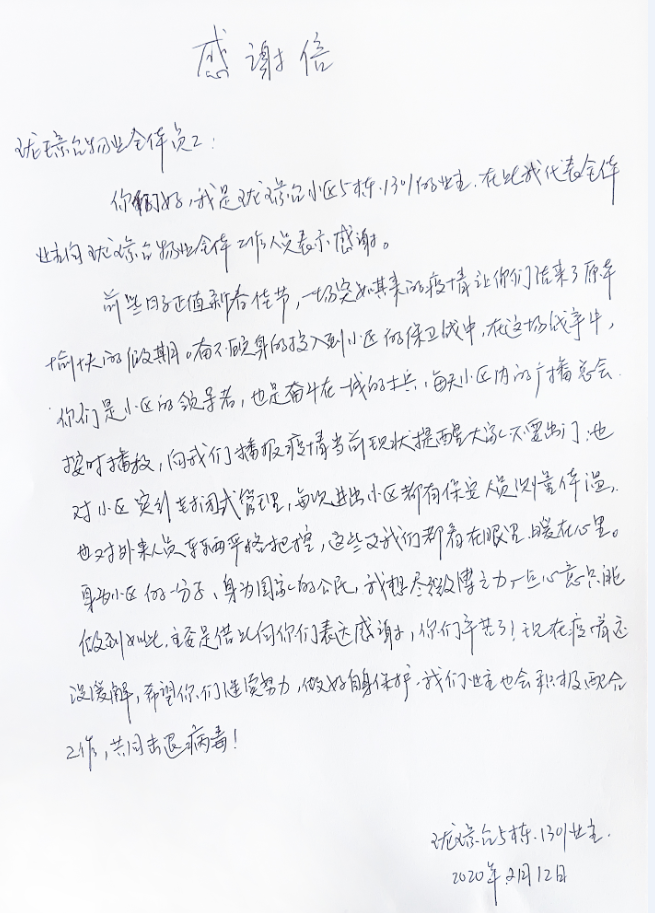 感谢信
珑璟台物业全体员工：
你们好，我是珑璟台小区5栋.1301的业主.在此我代表全体
业主向珑璟台物业全体工作人员表示感谢。
前些日子正值新春佳节，一场突如其来的疫情让你们结束了原本
愉快的假期。奋不顾身的投入到小区的保卫战中，在这场战争中，
你们是小区的领导者，也是奋斗在一线的士兵，每天小区内的广播总会
按时播放，向我们播报疫情当前现状提醒大家不要出门.也
对小区实行封闭式管理，每次进出小区都有保安人员测量体温，
也对外来人员车辆严格把控，这些我们都看在眼里.暖在心里。
身为小区的一分子、身为国家的公民，我想尽绵薄之力，一点心意只能
做到如此.主要是借此向你们表达感谢，你们辛苦了！现在疫情还
没缓解，希望你们继续努力，做好自身保护.我们业主也会积极配合
工作，共同击退病毒！
珑璟台5栋.1301业主.
2020年.2月12日